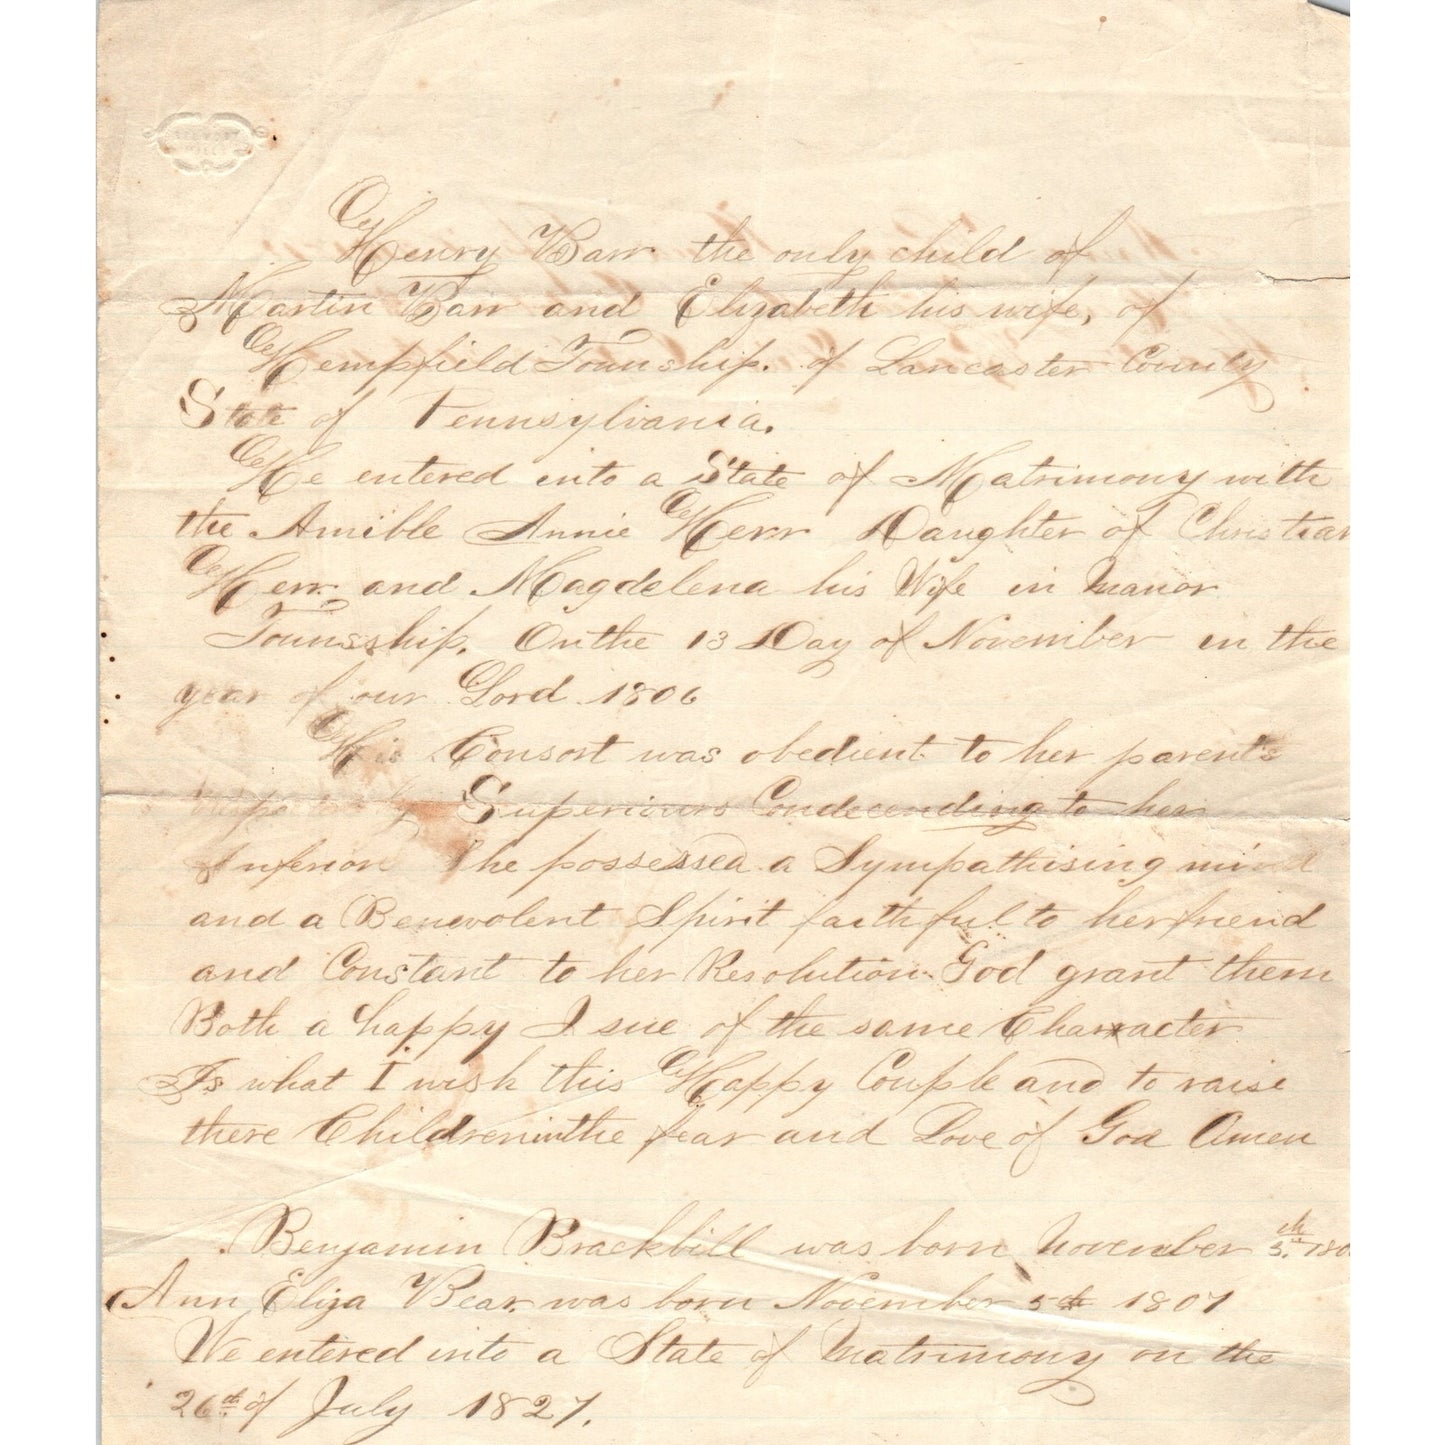 Henry Barr the only child of
Martin Barr and Elizabeth his wife, of
Hempfield Township. of Lancaster County
State of Pennsylvania.
He entered into a State of Matrimony with
the Amible Annie Herr Daughter of Christian
Herr. and Magdelena his Wife in Manor
Townsship. On the 13 Day of November in the
year of our Lord 1806
His Consort was obedient to her parents
Superiours Condecending to her
Inferior She possessed a Sympathising mind
and a Benevolent Spirit faithful to her friend
and Constant to her Resolution. God grant them
Both a happy I sue of the same Character
Is what I wish this Happy Couple and to raise
there Children in the fear and Love of God Amen
Benjamin Brackbill was born November 5th 180
Ann Eliza Bear was born November 5th 1807
We entered into a State of Matrimony on the
26th of July 1827.